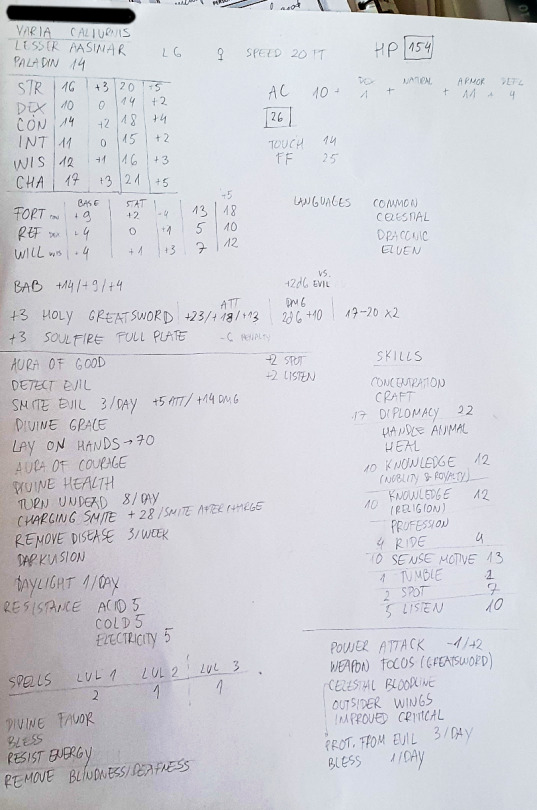 VARIA CALIURNIS
LESSER AASIMAR LG ♀ SPEED 20 FT HP 154
PALADIN 14
STR 16 +3 20 +5
DEX 10 0 14 +2
CON 14 +2 18 +4
INT 11 0 15 +2
WIS 12 +1 16 +3
CHA 17 +3 21 +5
AC 10 + DEX 1 + NATURAL + ARMOR 11 + DEFL 4
26
TOUCH 14
FF 25
BASE STAT +5
FORT CON +9 +2 +4 13 18
REF DEX +4 0 +1 5 10
WILL WIS +4 +1 +3 7 12
LANGUAGES COMMON
CELESTIAL
DRACONIC
ELVEN
BAB +14/+9/+4
+2d6 VS. EVIL
ATT DMG
+3 HOLY GREATSWORD +23/+18/+13 2d6+10 17-20 x2
+3 SOULFIRE FULL PLATE -6 PENALTY
AURA OF GOOD +2 SPOT
DETECT EVIL +2 LISTEN
SMITE EVIL 3/DAY +5 ATT/+14 DMG
DIVINE GRACE
LAY ON HANDS → 70
AURA OF COURAGE
DIVINE HEALTH
TURN UNDEAD 8/DAY
CHARGING SMITE +28/SMITE AFTER CHARGE
REMOVE DISEASE 3/WEEK
DARKVISION
DAYLIGHT 1/DAY
RESISTANCE ACID 5
COLD 5
ELECTRICITY 5
SPELLS LVL 1 LVL 2 LVL 3
2 1 1
DIVINE FAVOR
BLESS
RESIST ENERGY
REMOVE BLINDNESS/DEAFNESS
SKILLS
CONCENTRATION
CRAFT
17 DIPLOMACY 22
HANDLE ANIMAL
HEAL
10 KNOWLEDGE 12
(NOBILITY & ROYALTY)
10 KNOWLEDGE 12
(RELIGION)
PROFESSION
4 RIDE 4
10 SENSE MOTIVE 13
1 TUMBLE 1
2 SPOT 7
5 LISTEN 10
POWER ATTACK -1/+2
WEAPON FOCUS (GREATSWORD)
CELESTIAL BLOODLINE
OUTSIDER WINGS
IMPROVED CRITICAL
PROT. FROM EVIL 3/DAY
BLESS 1/DAY